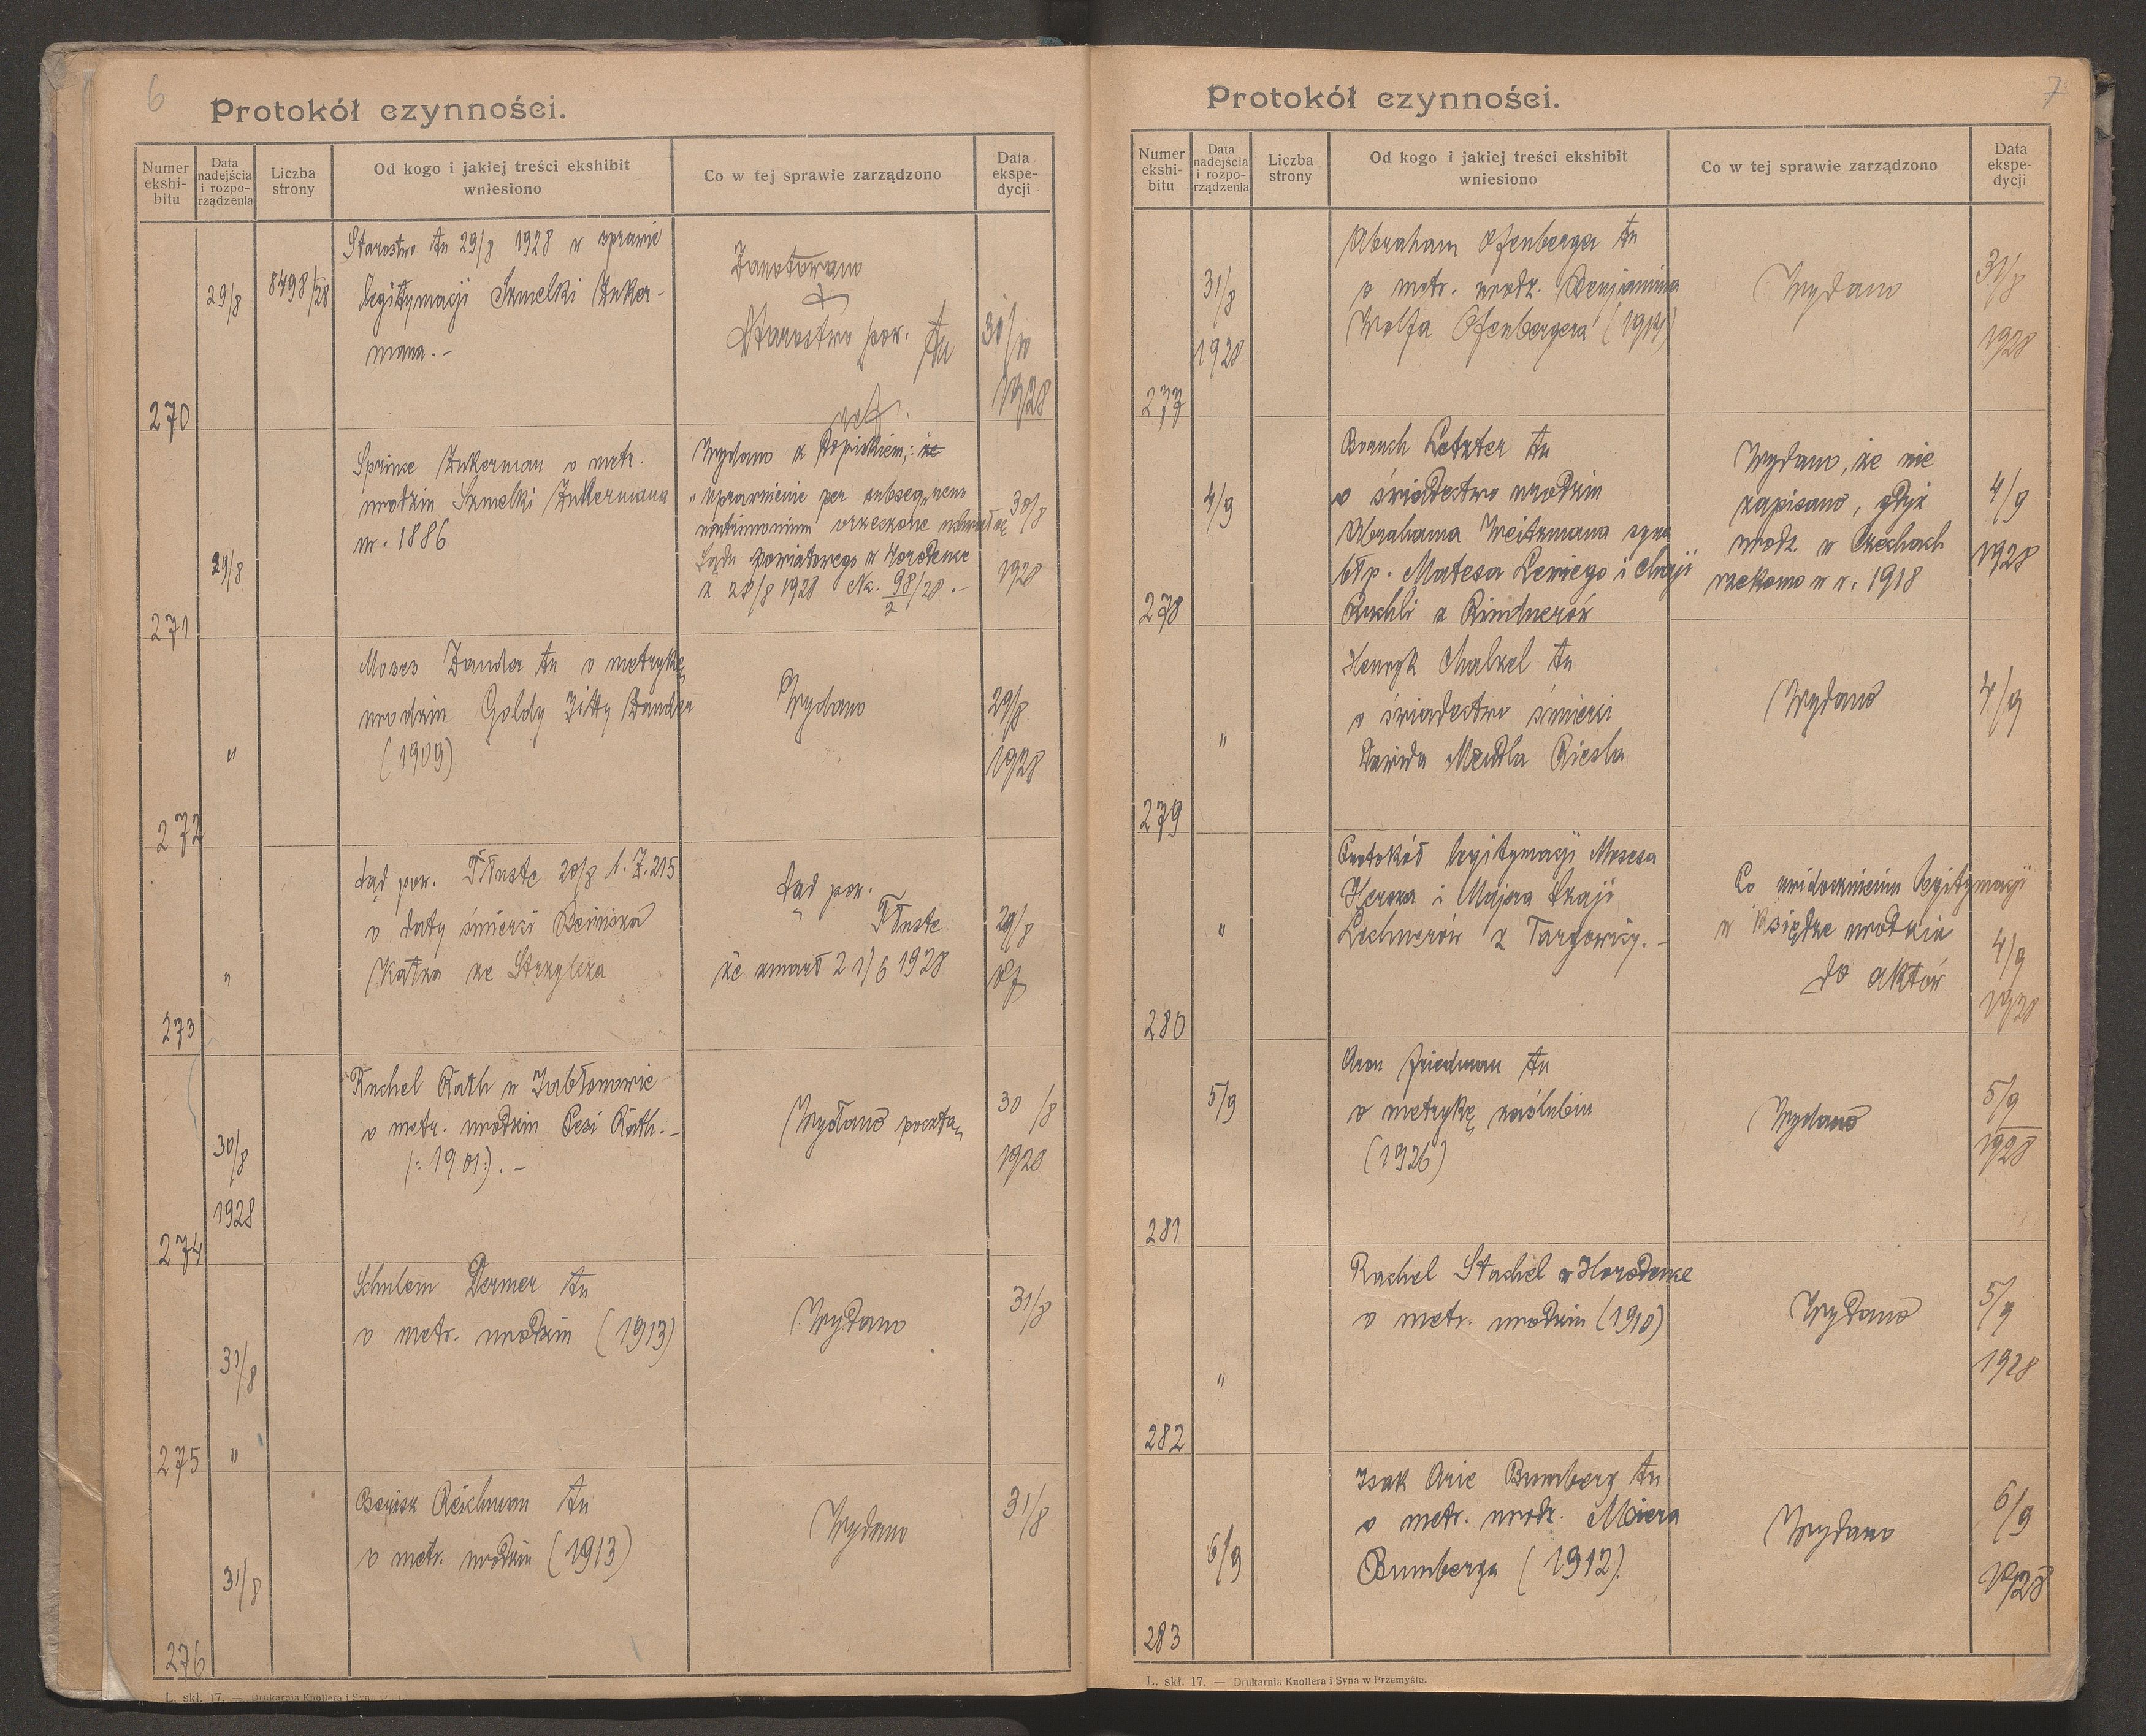 6
Protokół czynności.
Numer ekshi-bitu
Data nadejścia i rozpo-rządzenia
Liczba strony
Od kogo i jakiej treści ekshibit wniesiono
Co w tej sprawie zarządzono
Data ekspe-dycji
270
29/8
8498/28
Starostwo tu 29/8 1928 w sprawie
legitymacji Szmelki Zuker-
mana.-
Zanotowano
Starostwo pow. tu
30/10
1928
271
29/8
Sprince Zukerman o metr.
urodzin Szmelki Zukermana
ur. 1886
Wydano z dopiskiem:
"uprawnienie per subsequens
matrimonium orzeczone uchwałą
Sądu powiatowego w Horodence
z 28/8 1928 Nc. 98/2/28.-
30/8
1928
272
"
Moses Zander tu o metrykę
urodzin Goldy Zitty Zander
(1909)
Wydano
29/8
1928
273
"
Sąd pow. Tłuste 20/8 l. Z. 215
o daty śmierci
Katza ze Strzylcza
Sąd pow.
Tłuste
że zmarł 21/6 1928
29/8
274
30/8
1928
Ruchel Rath w Jabłonowie
o metr. urodzin Pesi Rath.-
/:1901:/.-
Wysłano pocztą
30/8
1928
275
31/8
"
Schulem Dermer tu
o metr. urodzin (1913)
Wydano
31/8
276
31/8
Reichman tu
o metr. urodzin (1913)
Wydano
31/8
L. skł. 17. — Drukarnia Knollera i Syna
7
Protokół czynności.
Numer ekshi-bitu
Data nadejścia i rozpo-rządzenia
Liczba strony
Od kogo i jakiej treści ekshibit wniesiono
Co w tej sprawie zarządzono
Data ekspe-dycji
277
31/8
1928
Abraham Ofenberger tu
o metr. urodz. Benjamina
Wolfa Ofenbergera (1914)
Wydano
31/8
1928
278
4/9
Baruch Letzter tu
o świadectwo urodzin
Abrahama Weitzmana syna
błp. Matesa Lewiego i Chaji
Ruchli z Rindnerów
Wydano, że nie
zapisano, gdyż
urodz. w Czechach
rzekomo w r. 1918
4/9
1928
279
"
Henryk Chalzel tu
o świadectwo śmierci
Dawida Mendla Riesla
Wydano
4/9
280
"
Protokół legitymacji Mosesa
Herza i Majera Szaji
Lechnerów z Targowicy.-
Po uwidocznieniu legitymacji
w księdze urodzin
do aktów
4/9
1928
281
5/9
Aron Friedman tu
o metrykę zaślubin
(1926)
Wydano
5/9
1928
282
"
Rachel Stachel w Horodence
o metr. urodzin (1910)
Wydano
5/9
1928
283
6/9
Isak Arie Bumberg tu
o metr. urodz. Meiera
Bumberga (1912).
Wydano
6/9
1928
L. skł. 17. — Drukarnia Knollera i Syna w Przemyślu.